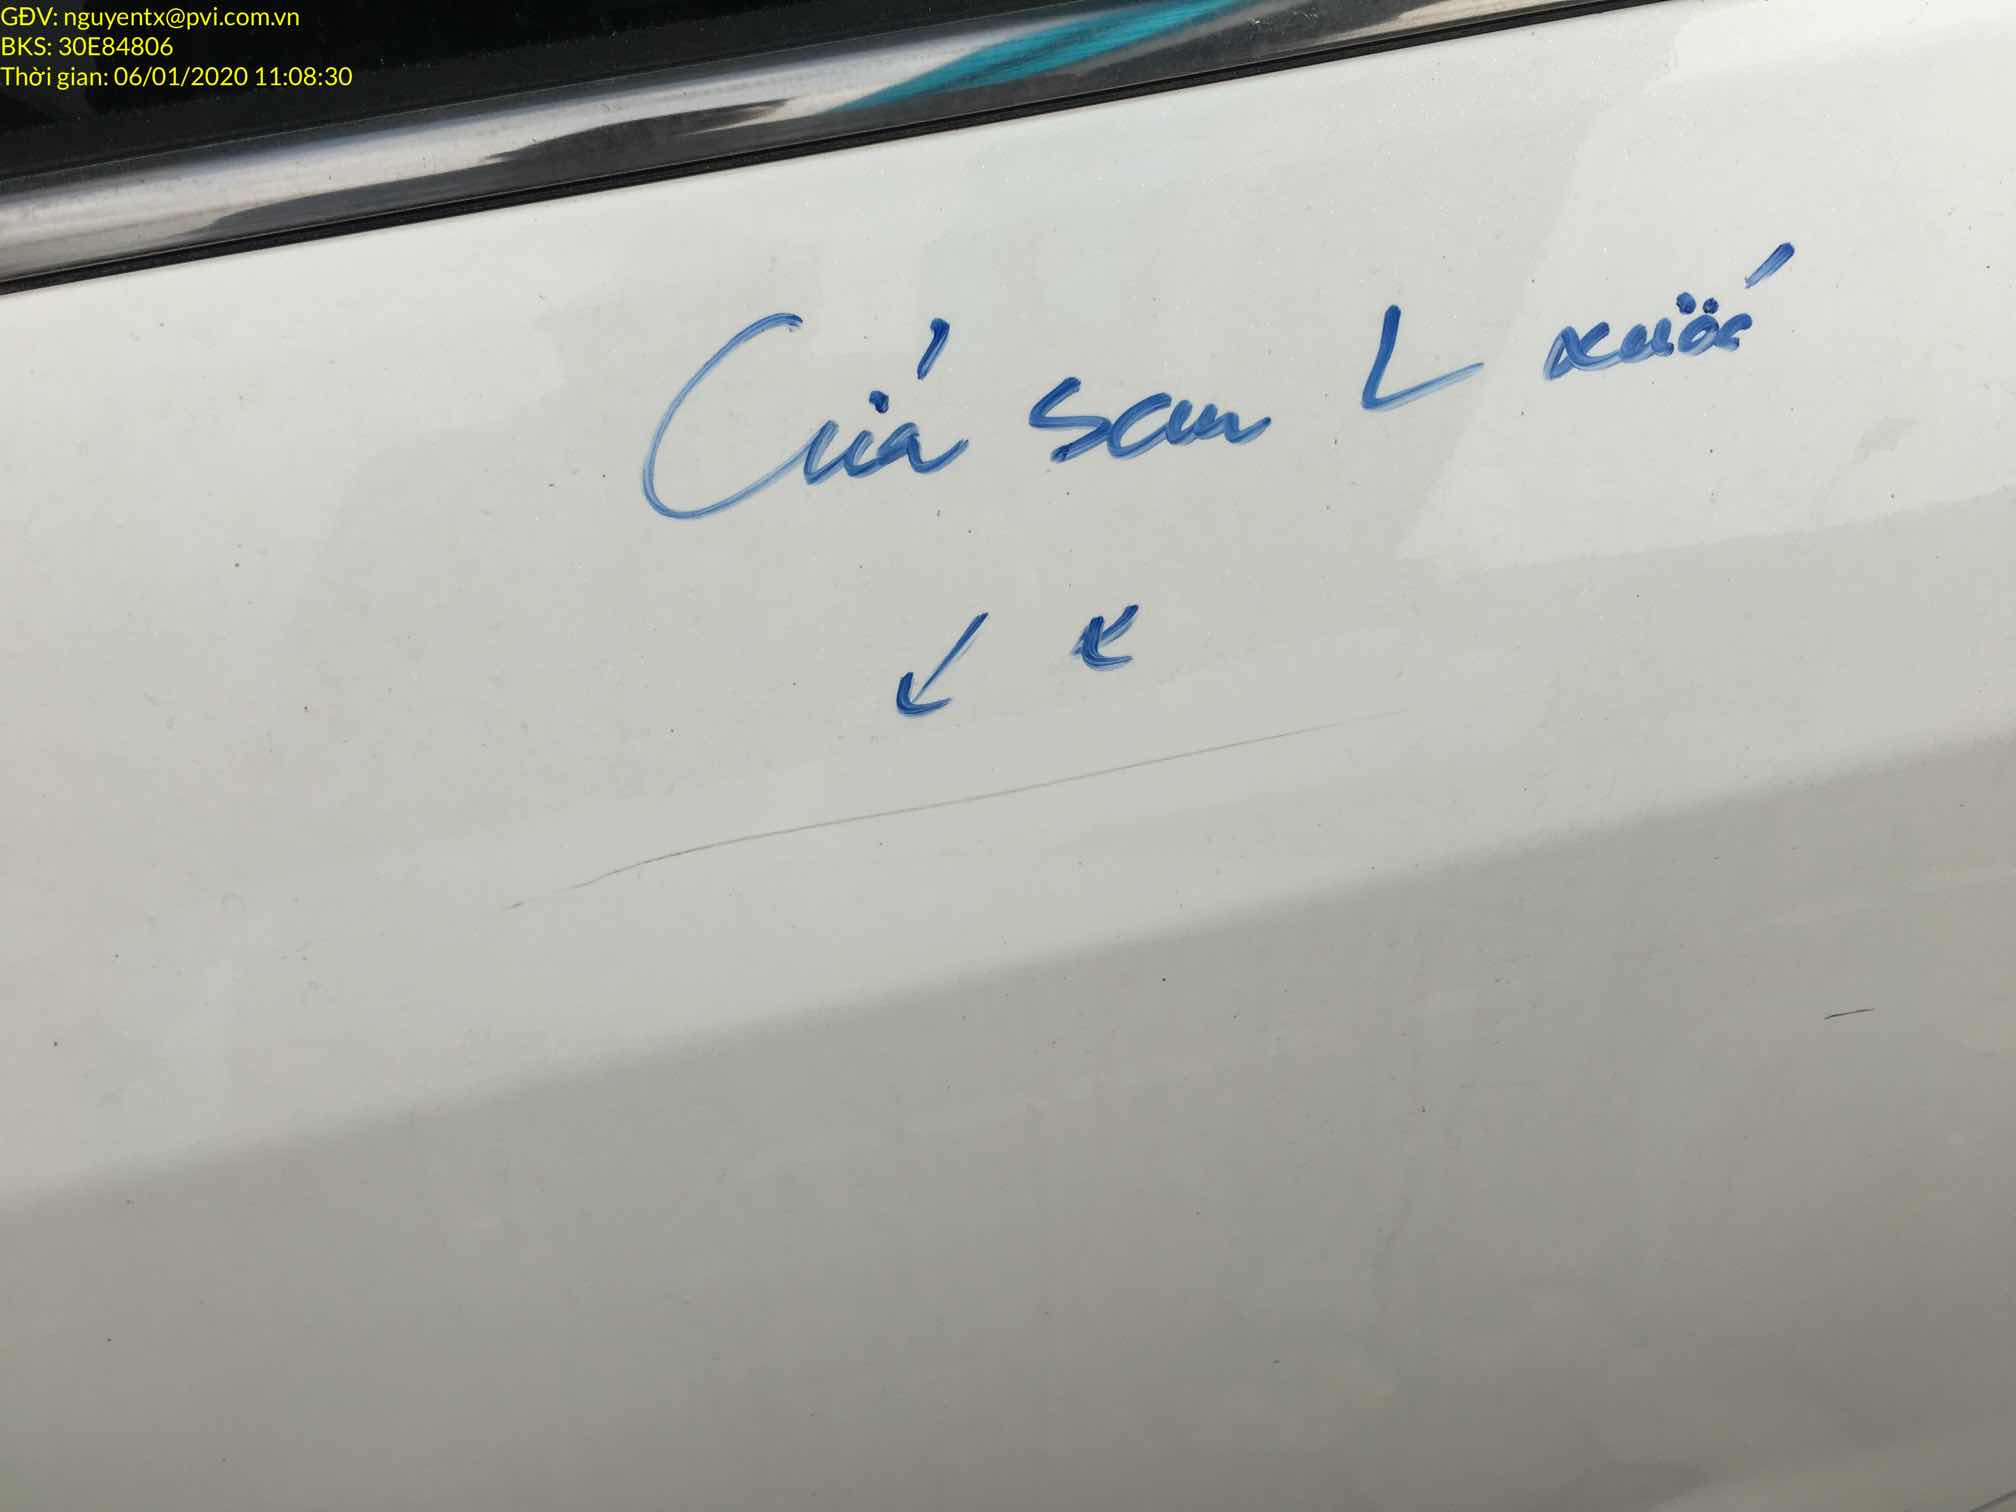 GĐV: nguyentx@pvi.com.vn
BKS: 30E84806
Thời gian: 06/01/2020 11:08:30
Cửa sau L xước